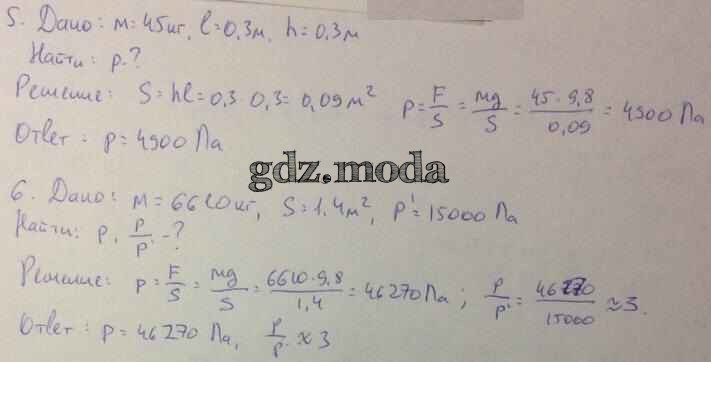 5. Дано: m=45кг, l=0,3м, h=0,3м
Найти: p-?
Решение: S=hl=0,3·0,3=0,09м² p=F/S=mg/S=45·9,8/0,09=4900Па
Ответ: p=4900Па
gdz.moda
6. Дано: m=6610кг, S=1,4м², p'=15000Па
Найти: p, p/p'-?
Решение: p=F/S=mg/S=6610·9,8/1,4=46270Па; p/p'=46270/15000≈3.
Ответ: p=46270Па, p/p'≈3